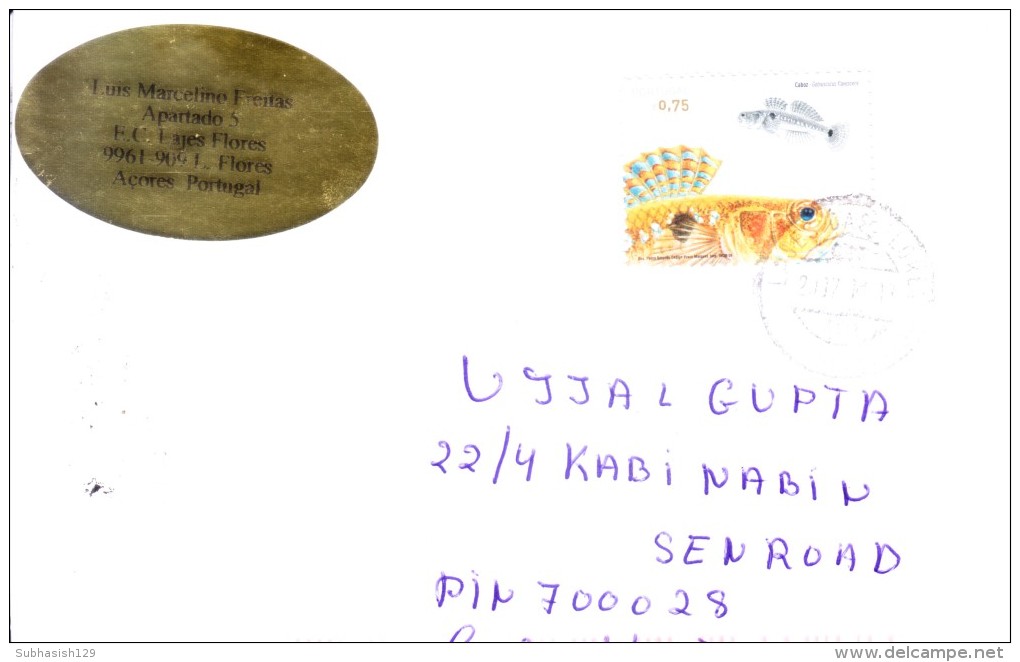 Luis Marcelino Freitas
Apartado 5
E.C. Lajes Flores
9961-909 L. Flores
Açores Portugal
0,75
Caboz
UJJAL GUPTA
22/4 KABI NABIN
SEN ROAD
PIN 700028
Subhasish129
delcampe.net